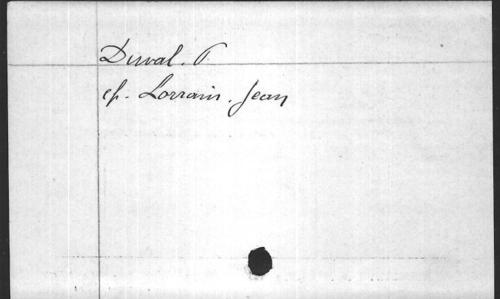 Duval. P
cf. Lorrain. Jean